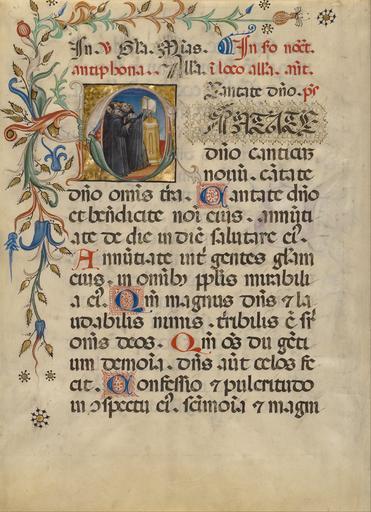 In ℣ Gła. Mias. In so noct.
antiphona. . Alła. i loco alła. ant.
Cantate dño. ps
CANTATE
dño canticuʒ
nouũ. cãtate
dño omis tra. Cantate dño
et benedicite noi eius. annũti
ate de die in diẽ salutare ei'.
Annũtiate int' gentes glam
eius. in omib' pplis mirabili
a ei'. Qm̃ magnus dñs ⁊ la
udabilis nimis. t'ribilis ẽ sr̃
omis deos. Qm̃ oẽs dii gẽti
um demoia. dñs aũt celos fe
cit. Confessio ⁊ pulcritudo
in ↄspectu ei'. scimoia ⁊ magni